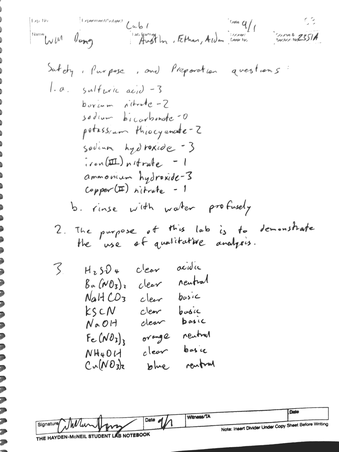 Exp. No. Experiment/Subject Lab 1 Date 9/1
Name Will Austin, Ethan, Aidan
Safety, Purpose, and Preparation questions:
1. a. sulfuric acid - 3
barium nitrate - 2
sodium bicarbonate - 0
potassium thiocyanate - 2
sodium hydroxide - 3
iron (III) nitrate - 1
ammonium hydroxide - 3
copper (II) nitrate - 1
b. rinse with water profusely
2. The purpose of this lab is to demonstrate
the use of qualitative analysis.
3 H2SO4 clear acidic
Ba(NO3)2 clear neutral
NaHCO3 clear basic
KSCN clear basic
NaOH clear basic
Fe(NO3)3 orange neutral
NH4OH clear basic
Cu(NO3)2 blue neutral
Signature Date 9/1 Witness/TA Date
THE HAYDEN-McNEIL STUDENT LAB NOTEBOOK Note: Insert Divider Under Copy Sheet Before Writing